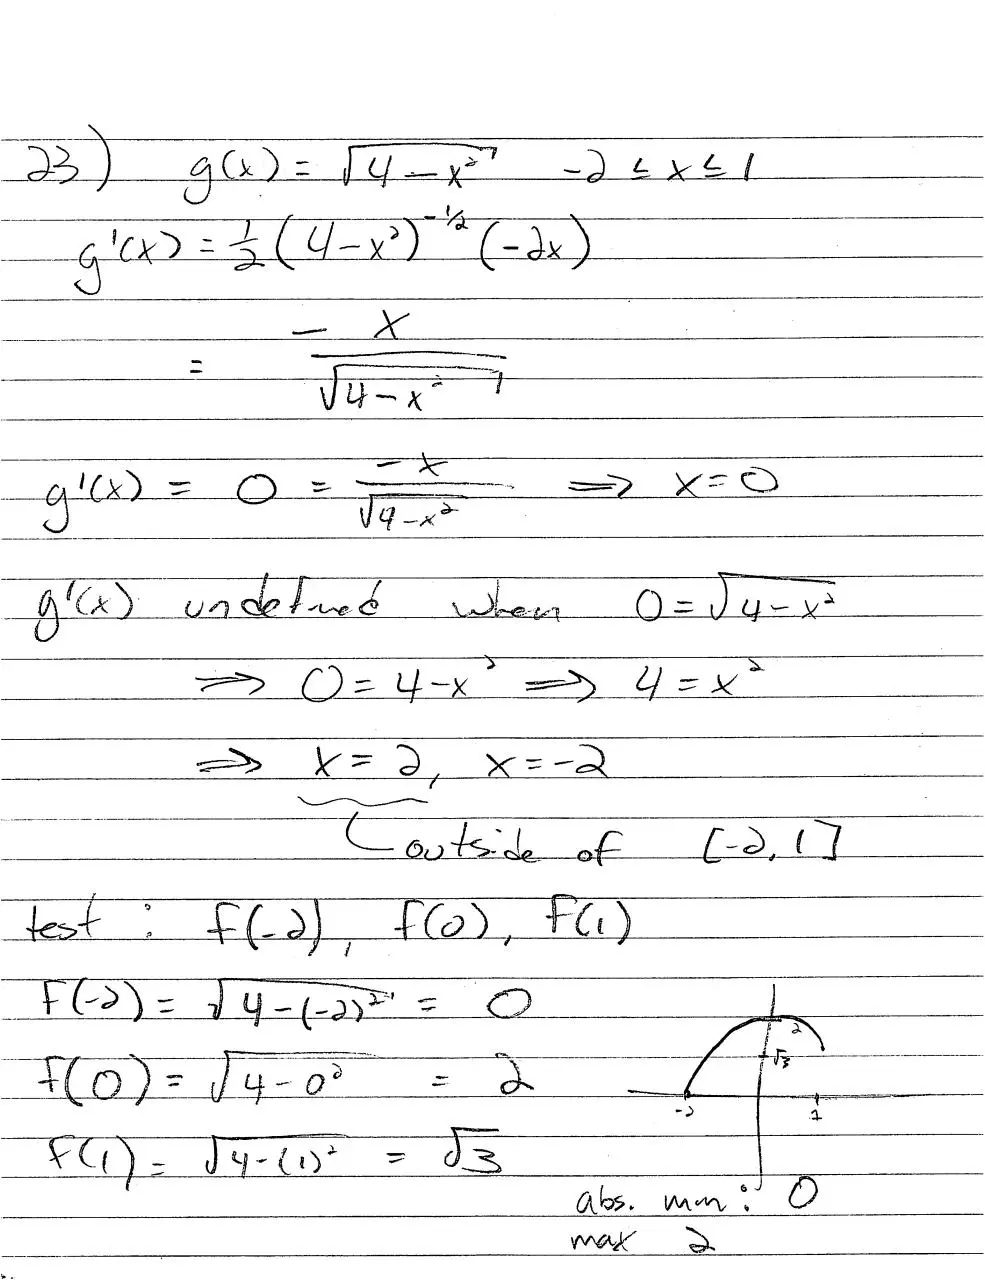 23) g(x) = √4-x² -2 ≤ x ≤ 1
g'(x) = 1/2 (4-x²)^-1/2 (-2x)
= -x/√4-x²
g'(x) = 0 = -x/√4-x² ⇒ x=0
g'(x) undefined when 0=√4-x²
⇒ 0=4-x² ⇒ 4=x²
⇒ x=2, x=-2
outside of [-2, 1]
test : f(-2), f(0), f(1)
f(-2) = √4-(-2)² = 0
f(0) = √4-0² = 2
f(1) = √4-(1)² = √3
2
√3
-2 1
abs. min : 0
max 2